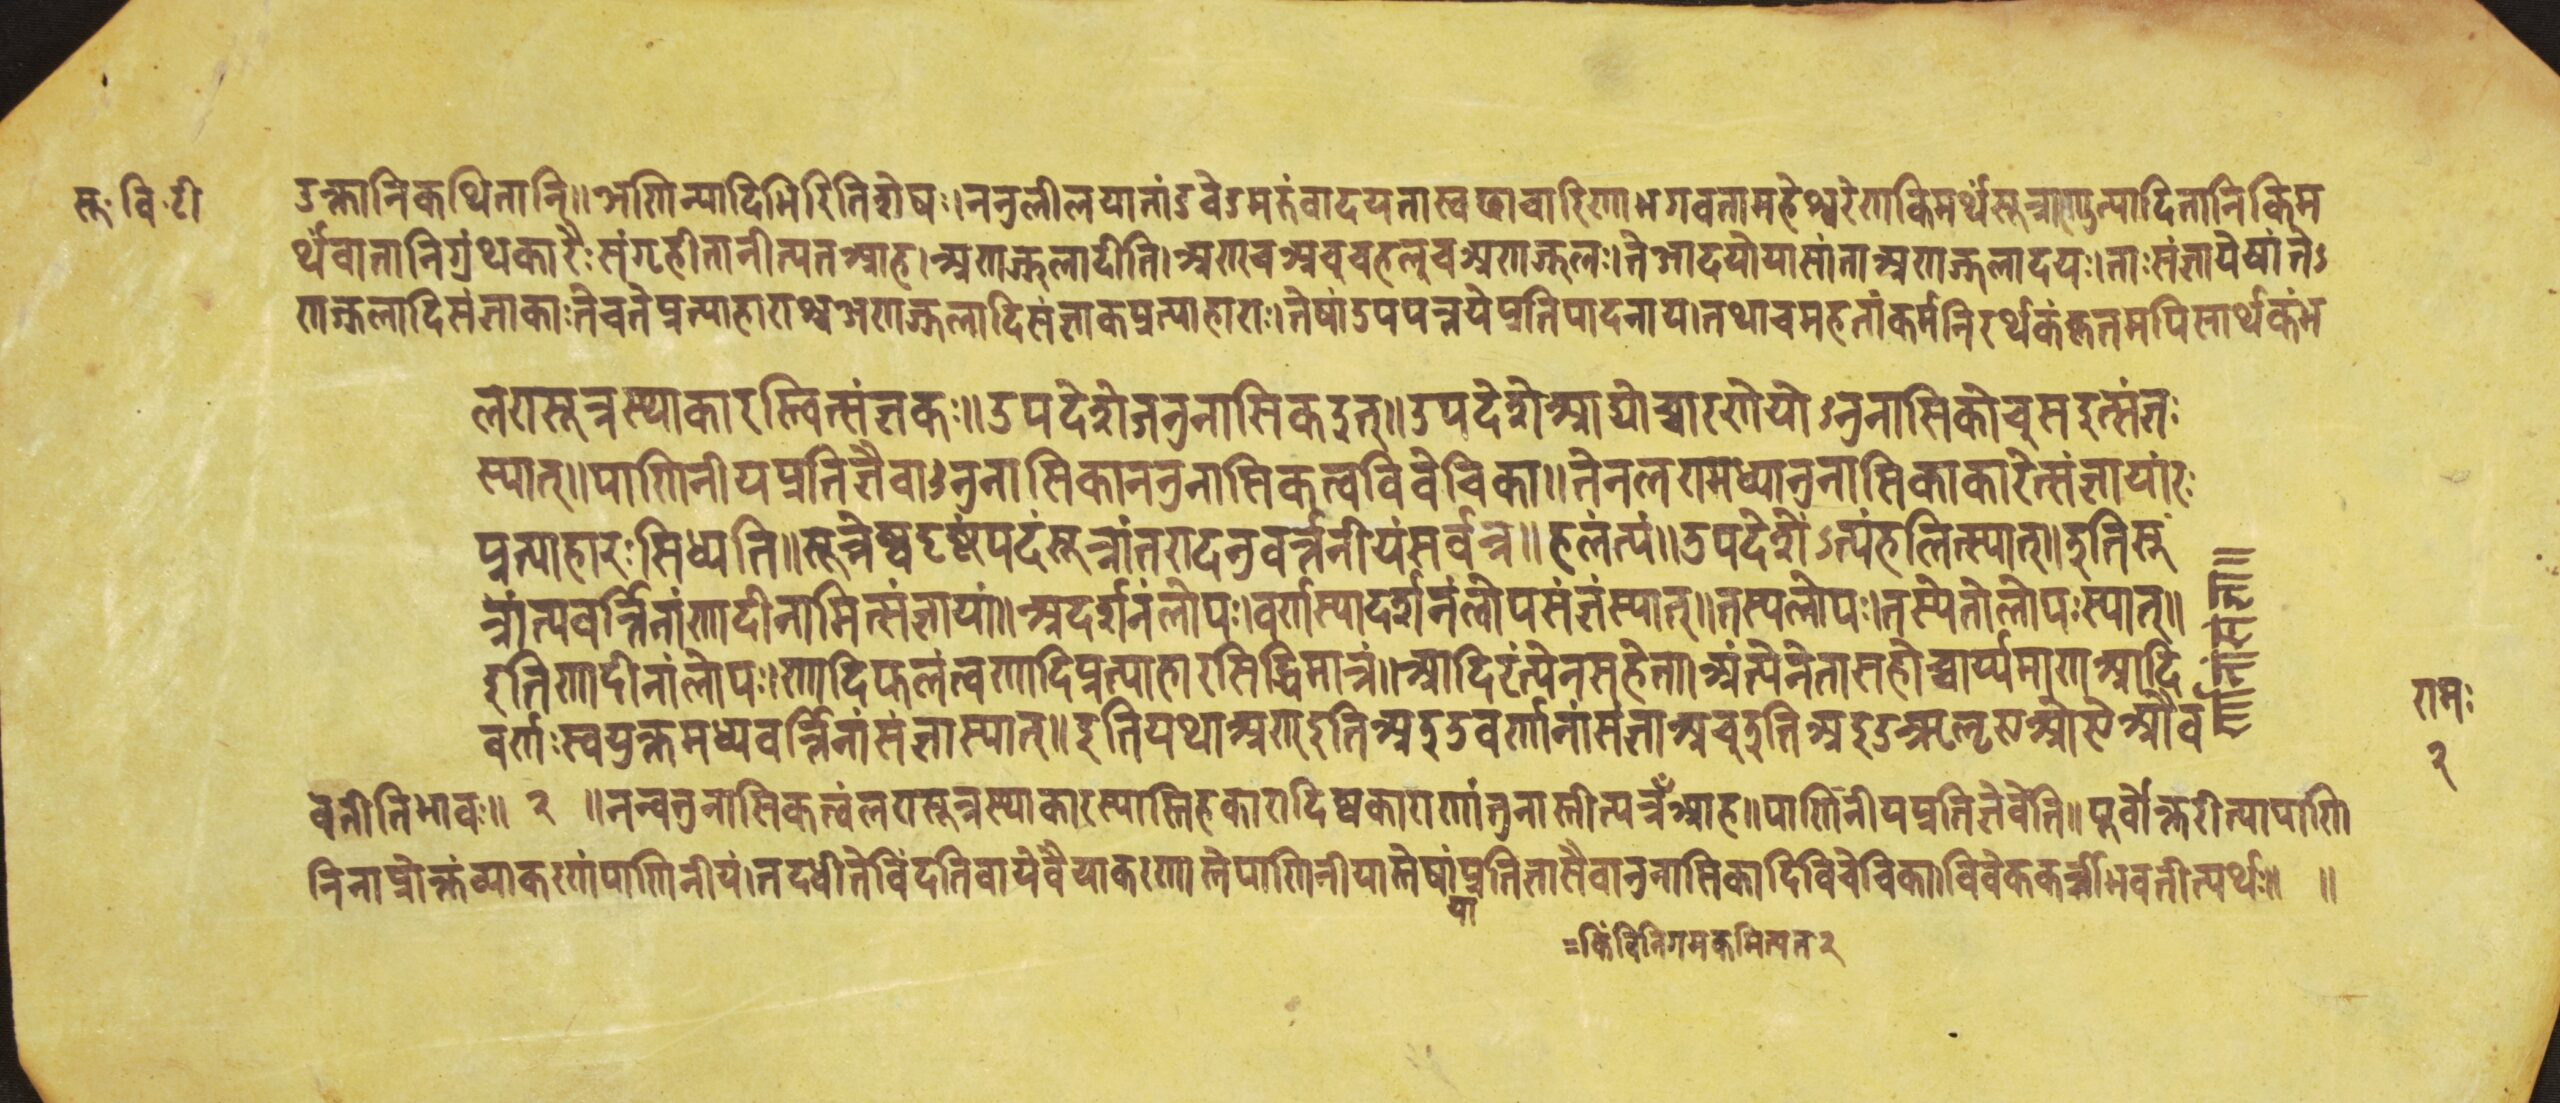 सू. वि. टी
उक्तानि कथितानि॥ अणिन्यादिभिरिति शेषः। ननु लीलया तांडवे डमरुं वादयता स्वेछाचारिणा भगवता महेश्वरेण किमर्थं सूत्राण्युत्पादितानि किम
र्थं वा तानि ग्रंथकारैः संगृहीतानीत्यत आह। अणज्झलादीति। अण् च अच् च हल् च अणज्झलः। ते आदयो यासां ता अणज्झलादयः। ताः संज्ञा येषां तेऽ
णज्झलादिसंज्ञाकाः ते च ते प्रत्याहाराश्च अणज्झलादिसंज्ञाकप्रत्याहाराः। तेषां उपपत्तये प्रतिपादनाय। तथा च महतां कर्म निरर्थकं कृतमपि सार्थकं भ
लण्सूत्रस्याकारस्त्वित्संज्ञकः॥ उपदेशेजनुनासिक इत्॥ उपदेशे आद्योच्चारणे योऽनुनासिकोच् स इत्संज्ञः
स्यात्॥ पाणिनीयप्रतिज्ञैवाऽनुनासिकाननुनासिकत्वविवेचिका॥ तेन लण्मध्यानुनासिकाकारेत्संज्ञायां रः
प्रत्याहारः सिध्यति॥ सूत्रेष्वदृष्टं पदं सूत्रांतरादनुवर्त्तनीयं सर्वत्र॥ हलंत्यं॥ उपदेशेंऽत्यं हलित्स्यात्॥ इति सू
त्रांत्यवर्त्तिनां णादीनामित्संज्ञायां॥ अदर्शनं लोपः। वर्णस्यादर्शनं लोपसंज्ञं स्यात्॥ तस्य लोपः। तस्येतो लोपः स्यात्॥
इति णादीनां लोपः। णादिफलं त्वणादिप्रत्याहारसिद्धिमात्रं॥ आदिरंत्येन सहेता। अंत्येनेता सहोच्चार्य्यमाण आदि
वर्णः स्वयुक्तमध्यवर्त्तिनां संज्ञा स्यात्॥ इति यथा अण् इति अ इ उ वर्णानां संज्ञा अच् इति अ इ उ ऋ लृ ए ओ ऐ औ व
रामः
२
वतीति भावः॥ २ ॥ नन्वनुनासिकत्वं लण्सूत्रस्याकारस्यास्ति हकारादिष्वकाराणां तु नास्तीत्यत्र आह॥ पाणिनीयप्रतिज्ञेवेति॥ पूर्वोक्तरीत्या पाणि
निना प्रोक्तं व्याकरणं पाणिनीयं। तदधीते विंदति वा ये वैयाकरणास्ते पाणिनीयास्तेषां प्रतिज्ञा सैवानुनासिकादिविवेचिका। विवेककर्त्री भवतीत्यर्थः॥ ॥
या
=किं विनिगमकमित्यत २